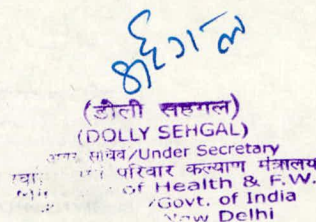 (डौली सहगल)
(DOLLY SEHGAL)
सचिव/Under Secretary
परिवार कल्याण मंत्रालय
of Health & F.W.
/Govt. of India
New Delhi